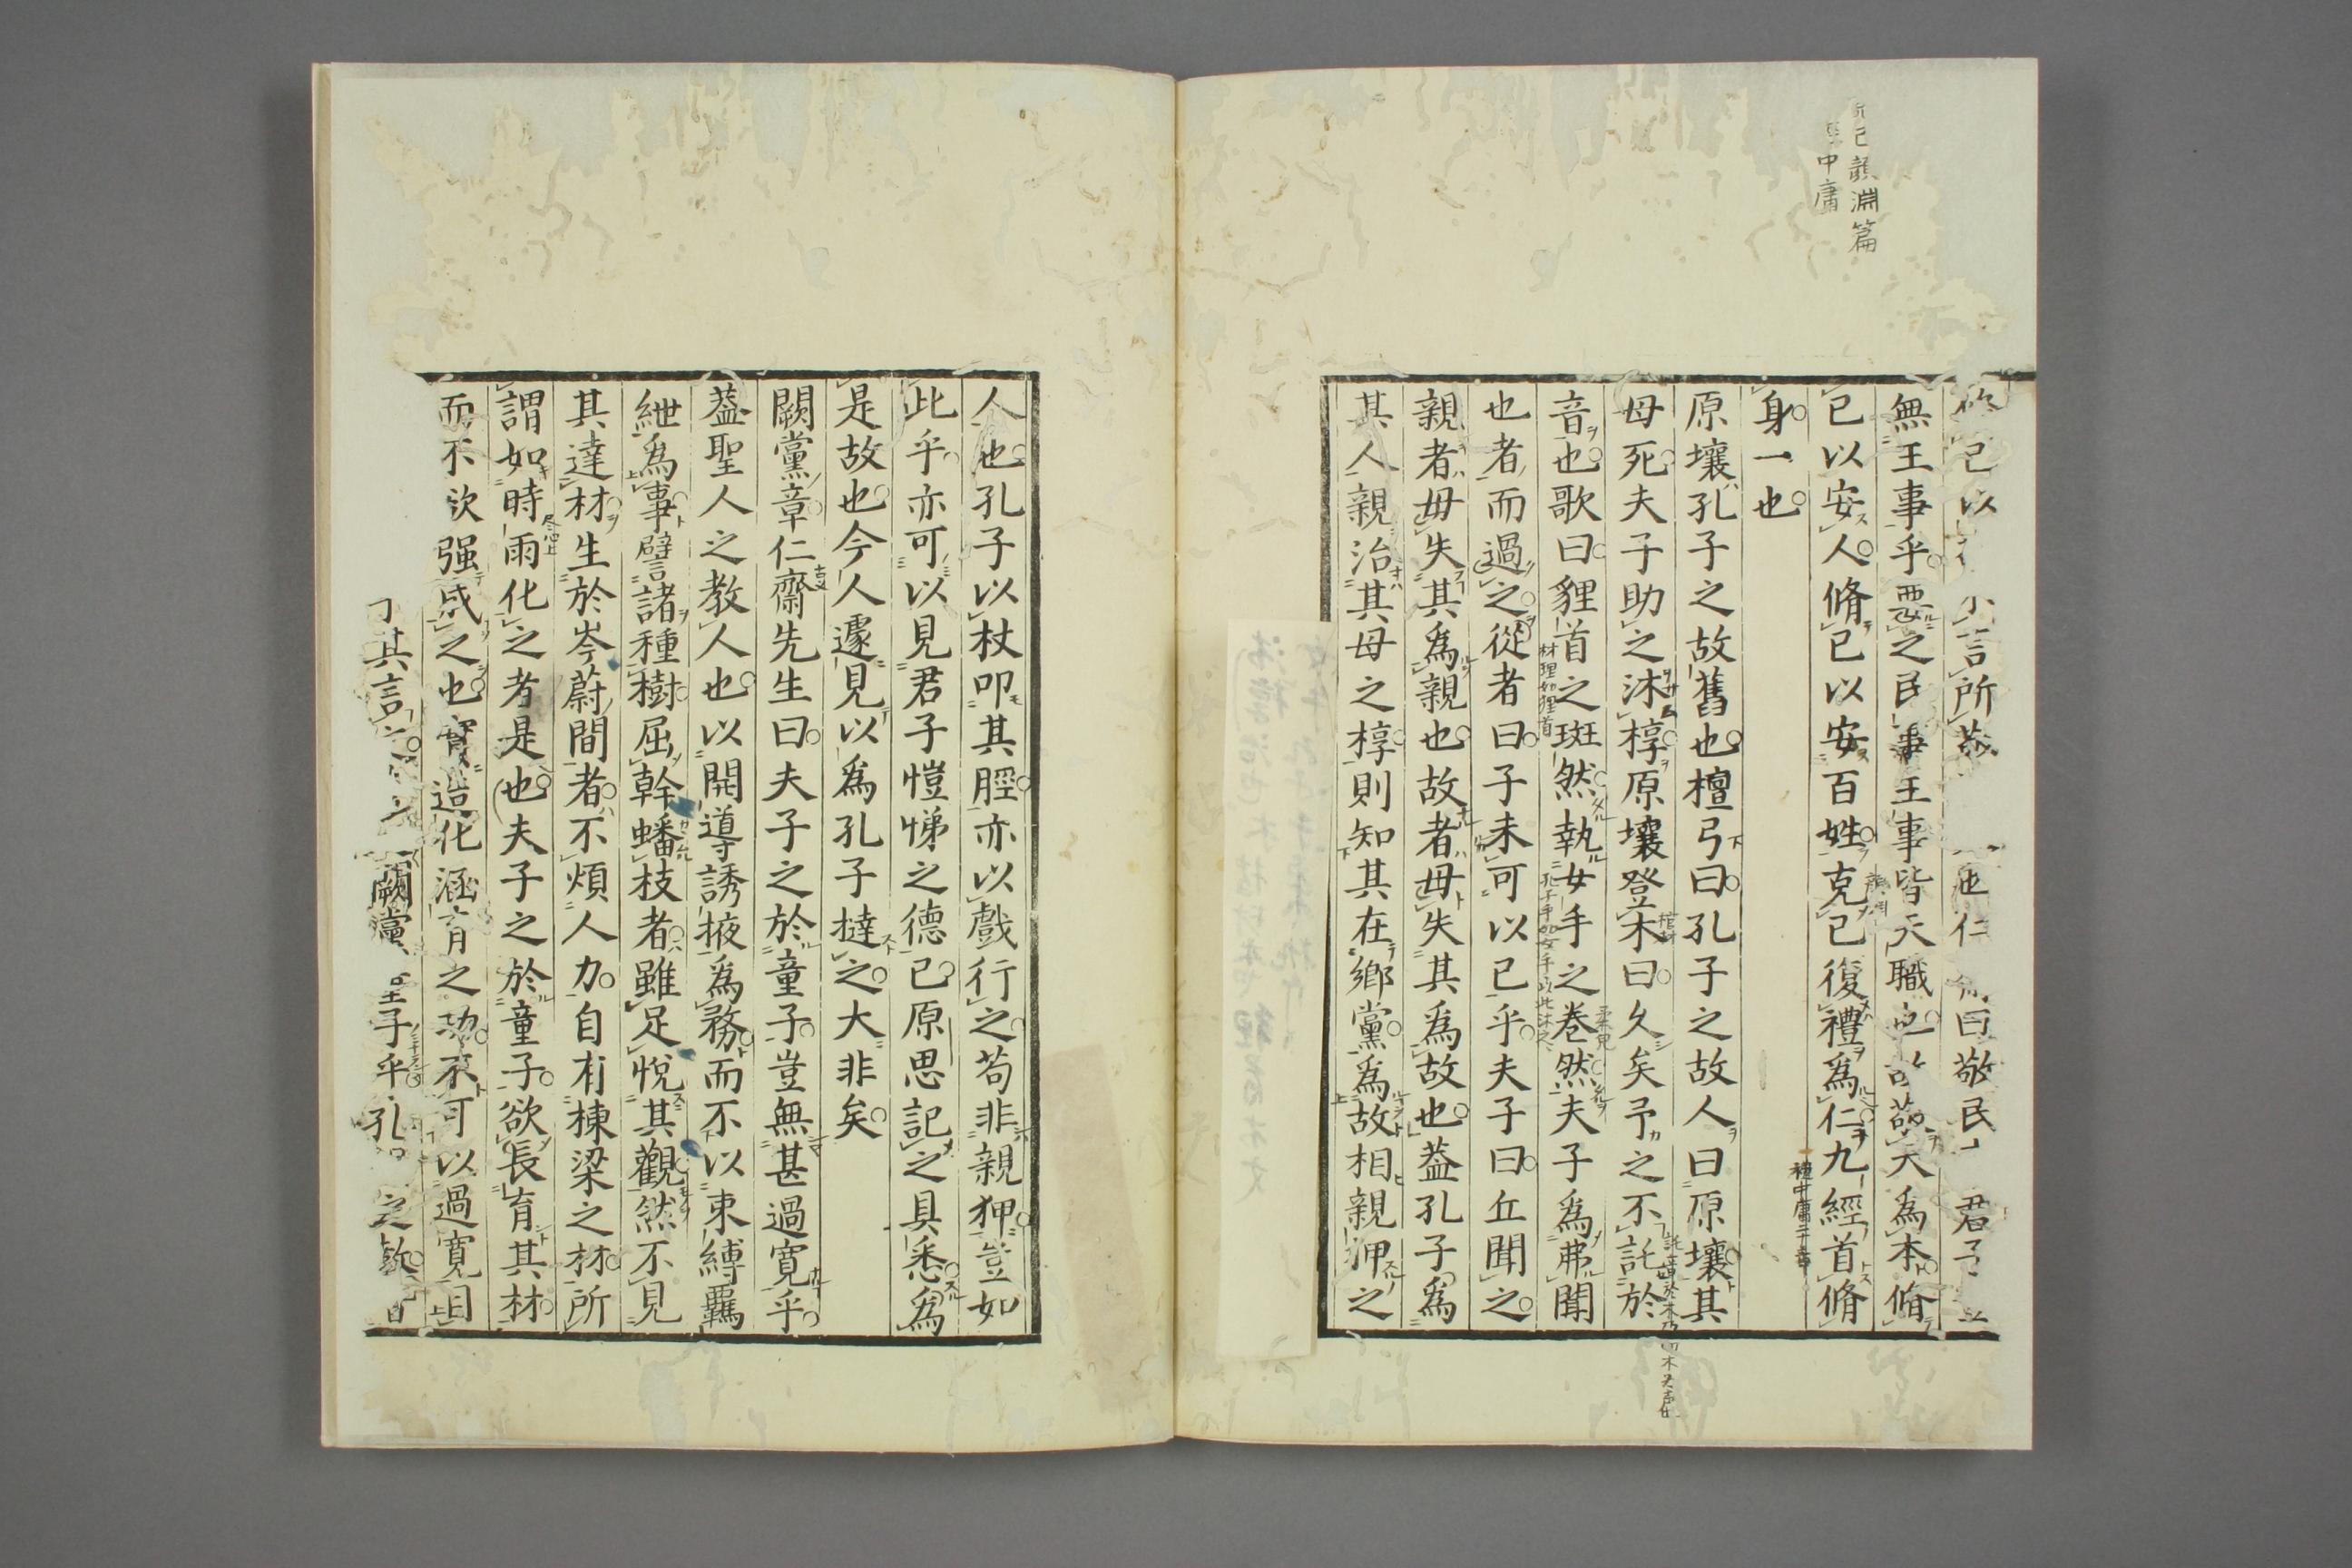 淵篇
中庸
已以言所敬也仁曰敬民君子
無王事乎惡之民事王事皆天職也故敬天爲本脩
已以安人脩已以安百姓克已復禮爲仁九經首脩
身一也
原壤孔子之故舊也檀弓曰孔子之故人曰原壤其
母死夫子助之沐椁原壤登木曰久矣予之不託於
音也歌曰貍首之斑然執女手之卷然夫子爲弗聞
也者而過之從者曰子未可以已乎夫子曰丘聞之
親者毋失其爲親也故者毋失其爲故也蓋孔子爲
其人親治其母之椁則知其在鄉黨爲故相親狎之
人也孔子以杖叩其脛亦以戲行之苟非親狎豈如
此乎亦可以見君子愷悌之德已原思記之具悉爲
是故也今人遽見以爲孔子撻之大非矣
闕黨章仁齋先生曰夫子之於童子豈無甚過寬乎
蓋聖人之教人也以開導誘掖爲務而不以束縛羈
紲爲事譬諸種樹屈幹蟠枝者雖足悅其觀然不見
其達材生於岑蔚間者不煩人力自有棟梁之材所
謂如時雨化之者是也夫子之於童子欲長育其材
而不欲强成之也實造化涵育之功不可以過寬目
其言闕黨童子乎孔之教